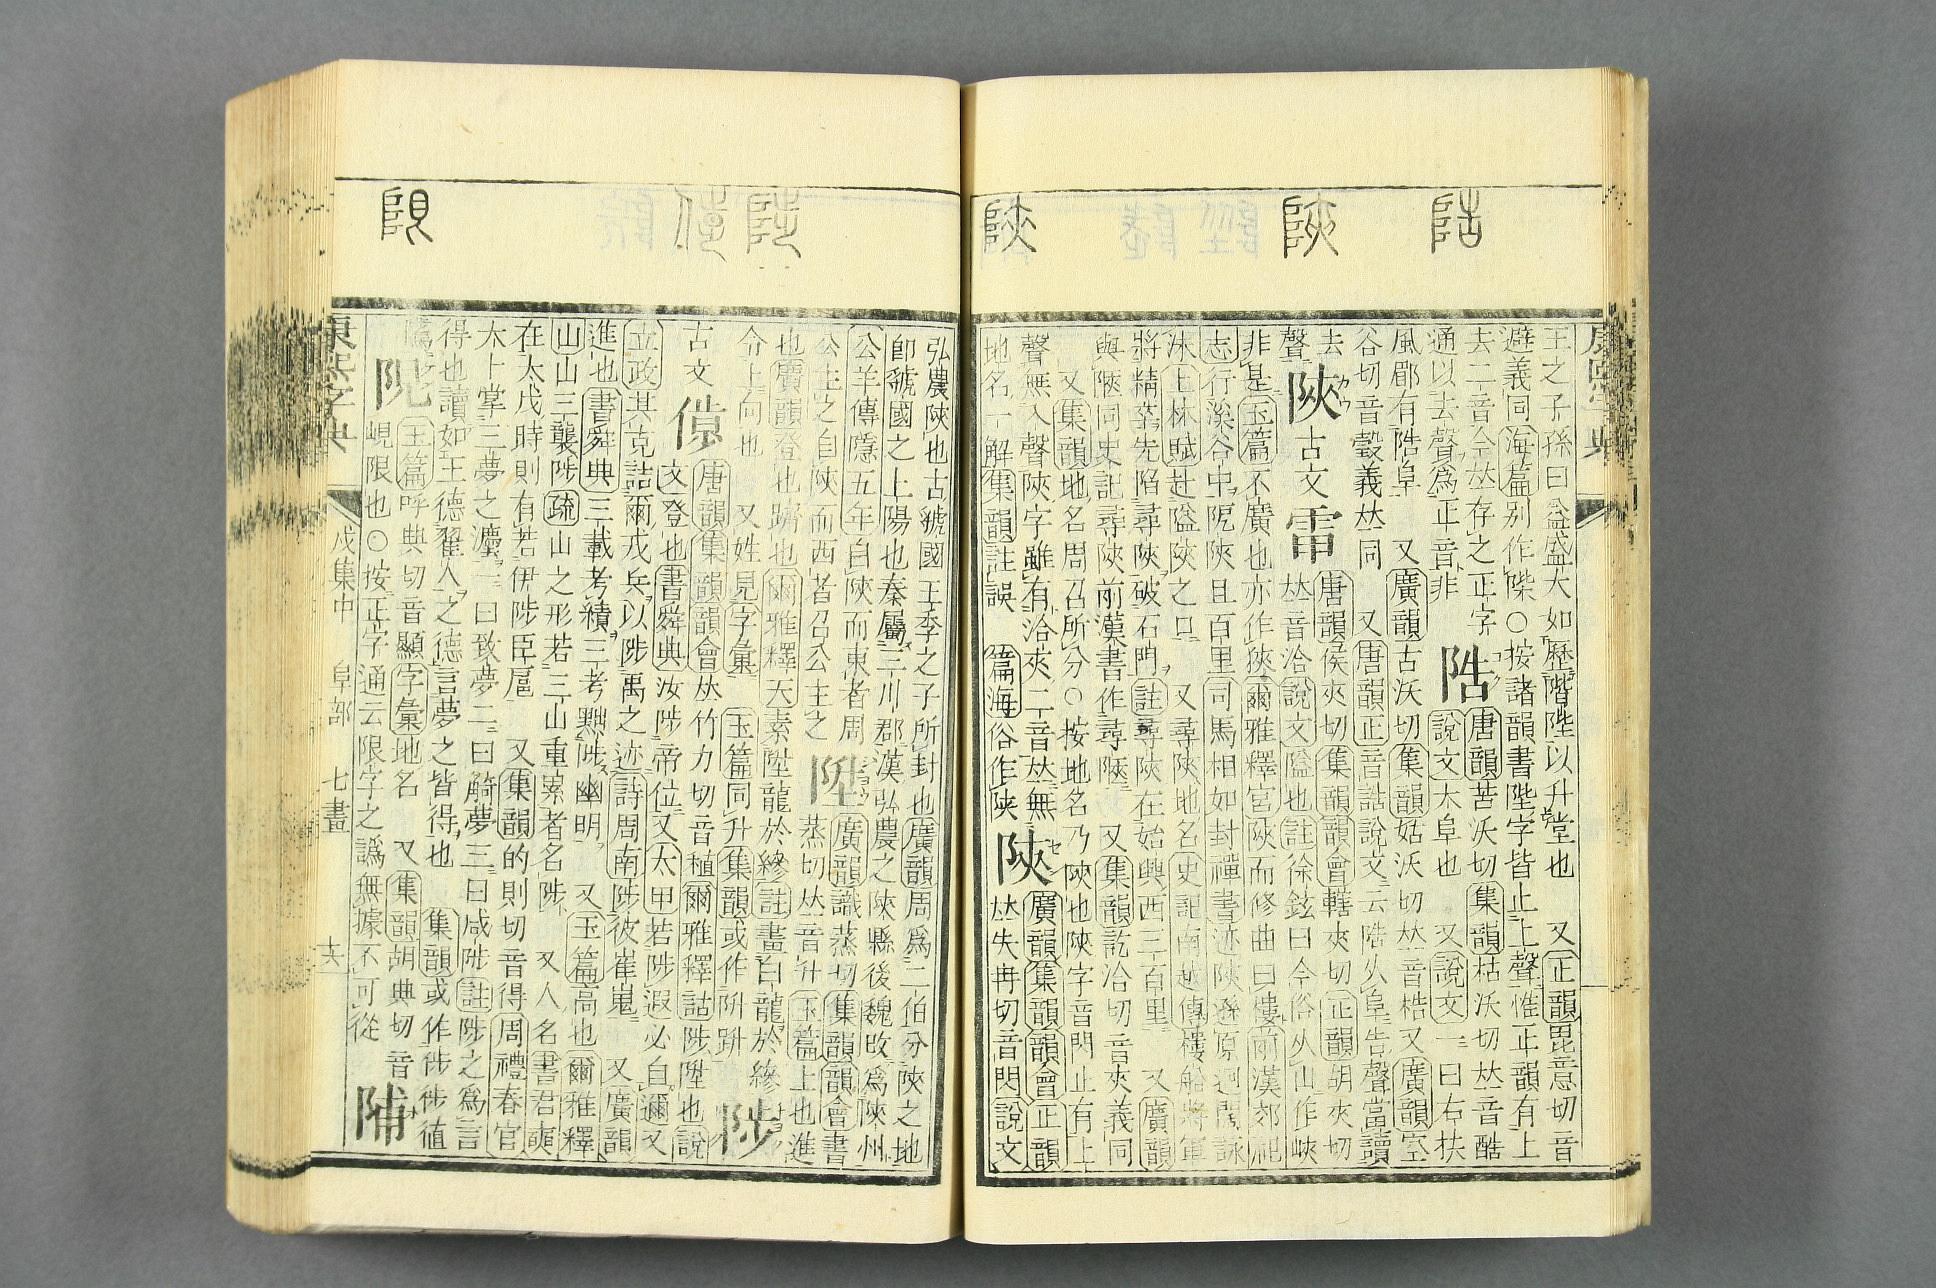 康熙字典
王之子孫曰益盛大如歷階陛以升堂也 又正韻毘意切音
避義同海篇別作○按諸韻書陛字皆止上聲惟正韻有上
去二音今𠀤存之正字 唐韻苦沃切集韻枯沃切𠀤音酷
通以去聲爲正音非 說文大阜也 又說文一曰右扶
風郿有阜 又廣韻古沃切集韻姑沃切𠀤音梏又廣韻空
谷切音義𠀤同 又唐韻正音誥說文云从阜告聲當讀
去 唐韻侯夾切集韻韻會轄夾切正韻胡夾切
聲 陜 古文 𠀤音洽說文隘也註徐鉉曰今俗从山作峽
非是玉篇不廣也亦作狹爾雅釋宮陜而修曲曰樓前漢郊祀
志行溪谷中阸陜且百里司馬相如封禪書迹陜遊原迥闊詠
沬上林賦赴隘陜之口 又尋陜地名史記南越傳樓船將軍
將精卒先陷尋陜破石門註尋陜在始興西三百里 又廣韻
與陿同史記尋陜前漢書作尋陿 又集韻訖洽切音夾義同
又集韻地名周召所分○按地名乃陝也陝字音閃止有上
聲無入聲陜字雖有洽夾二音𠀤無 陝 廣韻集韻韻會正韻
地名一解集韻註誤 篇海俗作陕 𠀤失冉切音閃說文
弘農陝也古虢國王季之子所封也廣韻周爲二伯分陝之地
卽虢國之上陽也秦屬三川郡漢弘農之陝縣後魏改爲陝州
公羊傳隱五年自陝而東者周 陞 廣韻識蒸切集韻韻會書
公主之自陝而西者召公主之 蒸切𠀤音升玉篇上也進
也廣韻登也躋也爾雅釋天素陞龍於縿註畫白龍於縿
令上向也 又姓見字彙 玉篇同升集韻或作阩 陟
古文 唐韻集韻韻會𠀤竹力切音稙爾雅釋詁陟陞也說
文登也書舜典汝陟帝位又太甲若陟遐必自邇又
立政其克詰爾戎兵以陟禹之迹詩周南陟彼崔嵬 又廣韻
進也書舜典三載考績三考黜陟幽明 又玉篇高也爾雅釋
山山三襲陟疏山之形若三山重累者名陟 又人名書君奭
在太戊時則有若伊陟臣扈 又集韻的則切音得周禮春官
大卜掌三夢之灋一曰致夢二曰觭夢三曰咸陟註陟之爲言
得也讀如王德翟人之德言夢之皆得也 集韻或作徏徝
玉篇呼典切音顯字彙地名 又集韻胡典切音
峴限也○按正字通云限字之譌無據不可從 陠
康熙字典 戌集中 阜部 七畫 十六